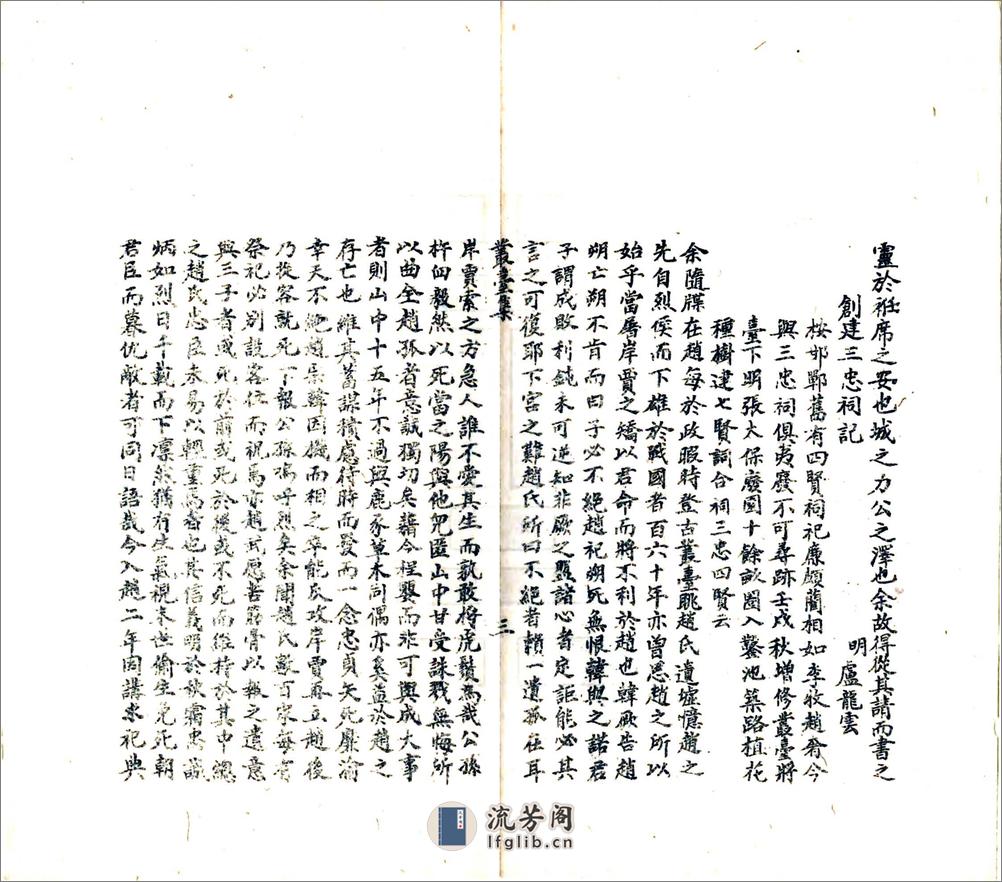 靈於袵席之安也城之力公之澤也余故得從其請而書之
創建三忠祠記
明 盧龍雲
桉邯鄲舊有四賢祠祀廉頗藺相如李牧趙奢今
與三忠祠俱夷廢不可尋跡壬戌秋增修叢臺將
臺下明張太保廢園十餘畝圈入鑿池築路植花
種樹建七賢詞合祠三忠四賢云
余隨牒在趙每於政暇時登古叢臺眺趙氏遺墟憶趙之
先自烈侯而下雄於戰國者百六十年亦曾思趙之所以
始乎當屠岸賈之矯以君命而將不利於趙也韓厥告趙
朔亡朔不肯而曰子必不絕趙祀朔死無恨韓與之諾君
子謂成敗利鈍未可逆知非厥之盟諸心者定詎能必其
言之可復耶下宮之難趙氏所曰不絕者賴一遺孤在耳
叢臺集
三
岸賈索之方急人誰不愛其生而孰敢捋虎鬚為哉公孫
杵臼毅然以死當之陽與他兒匿山中甘受誅戮無悔所
以曲全趙孤者意誠獨切矣藉令程嬰而非可與成大事
者則山中十五年不過與鹿豕草木同偶亦奚益於趙之
存亡也維其蓄謀積慮待時而發而一念忠貞矢死靡渝
幸天不絕趙祟韓因機而相之卒能反攻岸賈再立趙後
乃從容就死下報公孫嗚呼烈矣余聞趙氏數百家每嘗
祭祀必别設客位而祝焉亦趙武愿苦筋骨以報之遺意
與三子者或死於前或死於後或不死而維持於其中總
之趙氏忠臣未易以輕重為者也其信義明於秋霜忠誠
炳如烈日千載而下凛然猶有生氣視末世偷生免死朝
君臣而暮仇敵者可同日語哉今入趙二年因講求祀典
流芳阁
lfglib.cn